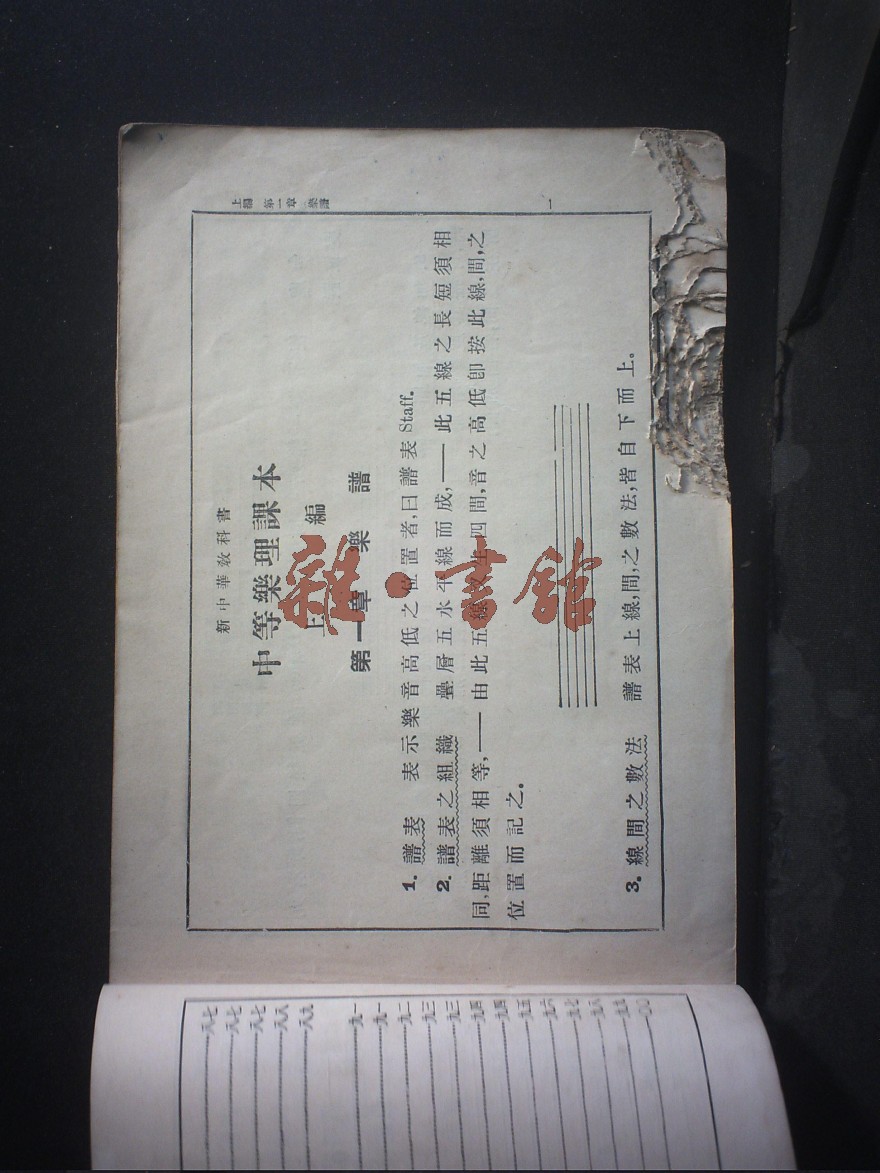 上編 第一章 樂譜
一
新中華教科書
中等樂理課本
上編
第一章 樂譜
1. 譜表 表示樂音高低之位置者,曰譜表 Staff.
2. 譜表之組織 疊層五水平線而成,——此五線之長短須相
同,距離須相等,——由此五線又生四間,音之高低卽按此線,間,之
位置而記之。
3. 線間之數法 譜表上線,間,之數法,皆自下而上。
八七
八七
八七
八八
八九
九一
九一
九二
九三
九三
九四
九四
九五
九六
九七
九八
九九
一〇〇